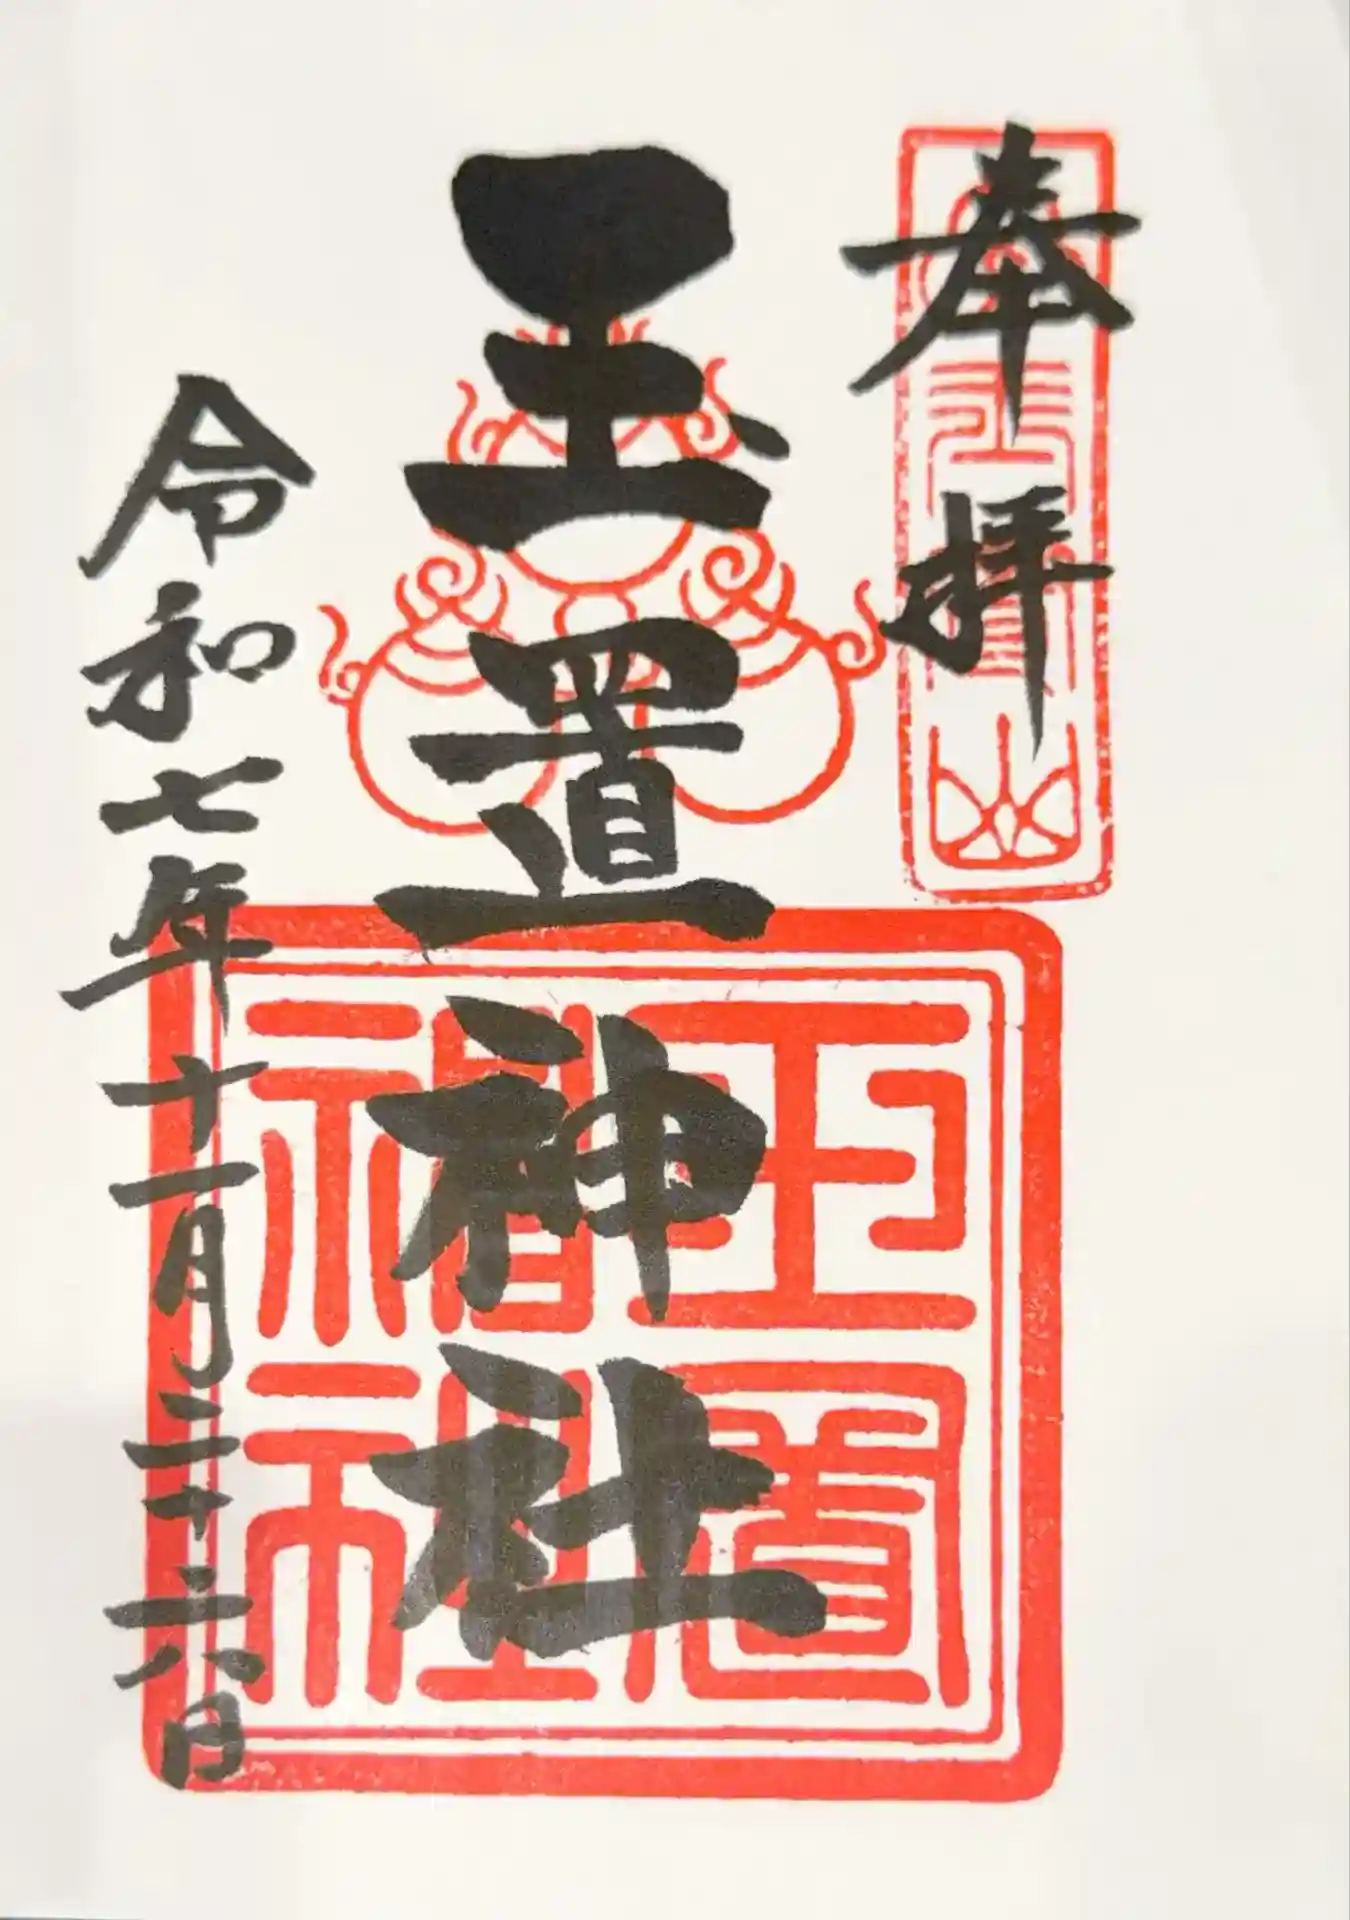 奉拝
玉置山
玉置神社
玉置神社
令和七年十一月二十六日